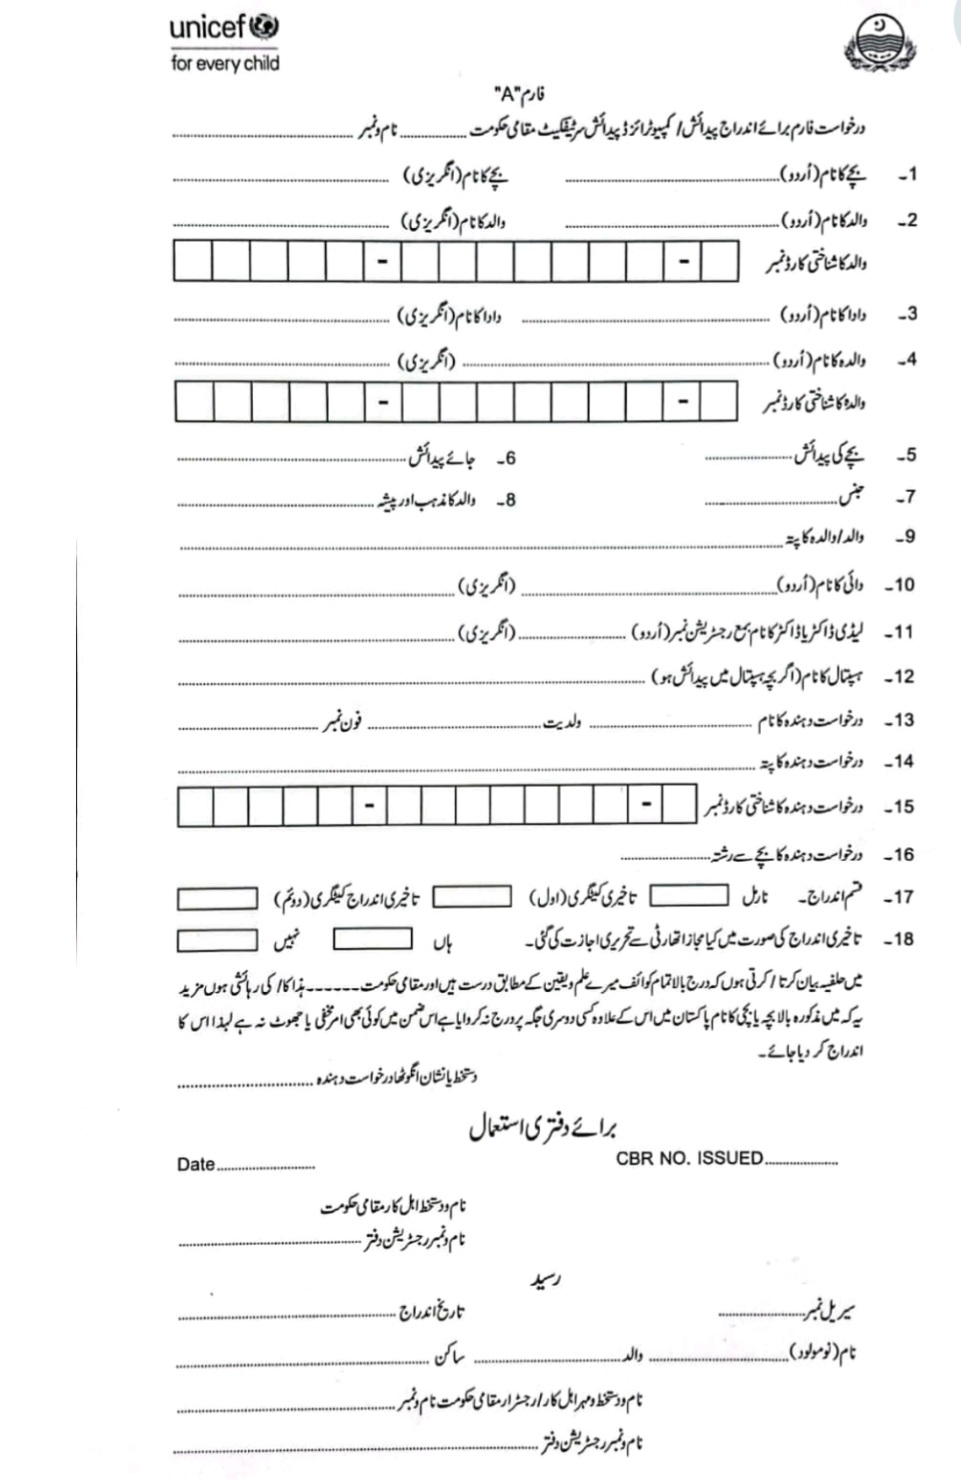 unicef
for every child
فارم "A"
درخواست فارم برائے اندراج پیدائش / کمپیوٹرائزڈ پیدائش سرٹیفکیٹ مقامی حکومت .............. نام و نمبر ..............
1۔ بچے کا نام (اُردو) .............. بچے کا نام (انگریزی) ..............
2۔ والد کا نام (اُردو) .............. والد کا نام (انگریزی) ..............
والد کا شناختی کارڈ نمبر - -
3۔ دادا کا نام (اُردو) .............. دادا کا نام (انگریزی) ..............
4۔ والدہ کا نام (اُردو) .............. (انگریزی) ..............
والدہ کا شناختی کارڈ نمبر - -
5۔ بچے کی پیدائش .............. 6۔ جائے پیدائش ..............
7۔ جنس .............. 8۔ والد کا مذہب اور پیشہ ..............
9۔ والد/والدہ کا پتہ ..............
10۔ دائی کا نام (اُردو) .............. (انگریزی) ..............
11۔ لیڈی ڈاکٹر یا ڈاکٹر کا نام بمع رجسٹریشن نمبر (اُردو) .............. (انگریزی) ..............
12۔ ہسپتال کا نام (اگر بچہ ہسپتال میں پیدائش ہو) ..............
13۔ درخواست دہندہ کا نام .............. ولدیت .............. فون نمبر ..............
14۔ درخواست دہندہ کا پتہ ..............
15۔ درخواست دہندہ کا شناختی کارڈ نمبر - -
16۔ درخواست دہندہ کا بچے سے رشتہ ..............
17۔ قسم اندراج۔ نارمل تاخیری کیٹگری (اول) تاخیری اندراج کیٹگری (دوئم)
18۔ تاخیری اندراج کی صورت میں کیا مجاز اتھارٹی سے تحریری اجازت کی گئی۔ ہاں نہیں
میں حلفیہ بیان کرتا / کرتی ہوں کہ درج بالا تمام کوائف میرے علم و یقین کے مطابق درست ہیں اور مقامی حکومت ------- ہذا کا / کی رہائشی ہوں مزید
یہ کہ میں مذکورہ بالا بچہ یا بچی کا نام پاکستان میں اس کے علاوہ کسی دوسری جگہ پر درج نہ کروایا ہے اس ضمن میں کوئی بھی امر مخفی یا جھوٹ نہ ہے لہٰذا اس کا
اندراج کر دیا جائے۔
دستخط یا نشان انگوٹھا درخواست دہندہ ..............
برائے دفتری استعمال
CBR NO. ISSUED..............
Date..............
نام و دستخط اہل کار مقامی حکومت
نام و نمبر رجسٹریشن دفتر ..............
رسید
سیریل نمبر .............. تاریخ اندراج ..............
نام (نومولود) .............. والد .............. ساکن ..............
نام و دستخط و مہر اہل کار / رجسٹرار مقامی حکومت نام و نمبر ..............
نام و نمبر رجسٹریشن دفتر ..............